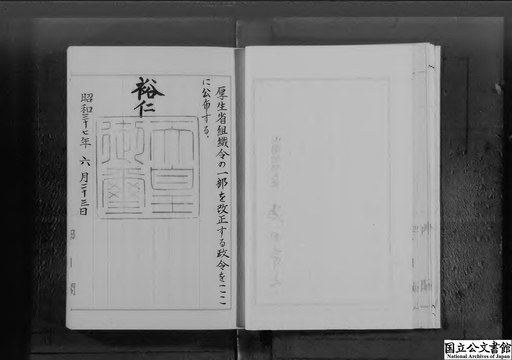 厚生省組織令の一部を改正する政令をここ
に公布する。
裕仁
天皇
御璽
昭和三十七年六月二十三日
国立公文書館
National Archives of Japan